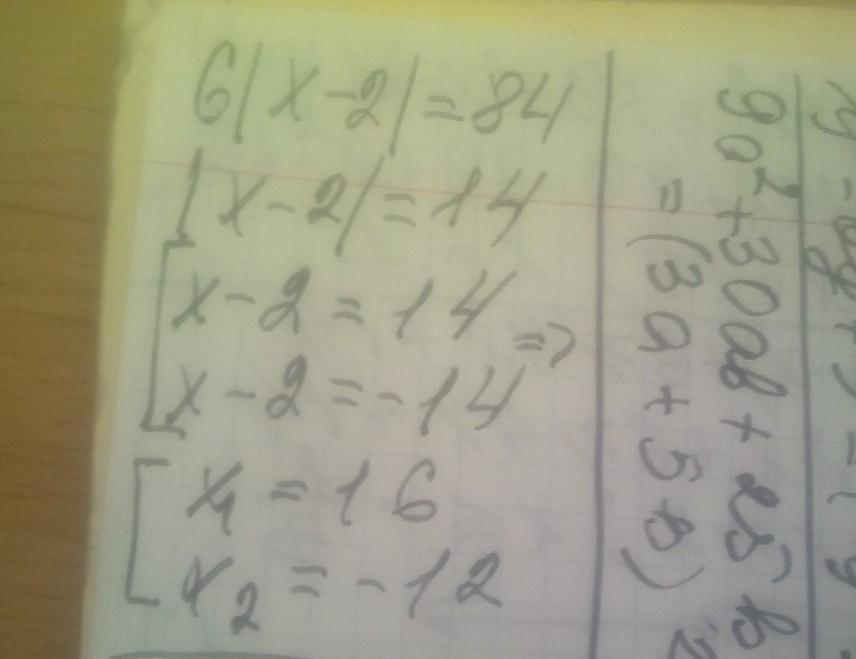 6|x-2|=84
|x-2|=14
x-2=14
x-2=-14 =>
x₁=16
x₂=-12
9a²+30ab+25b²
=(3a+5b)²